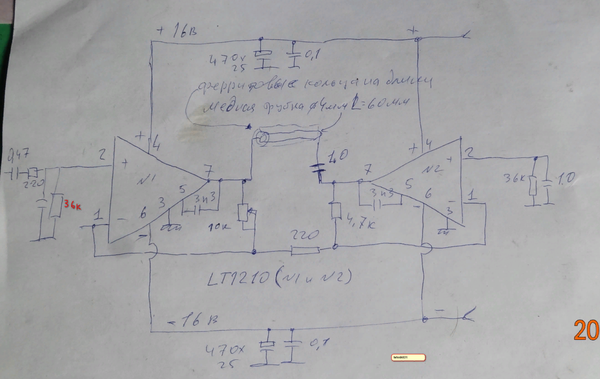 +16В
+
470х
25
0,1
ферритовые кольца на бинок
медная трубка ø4мм L=60мм
0,47
220
36к
2
+
+
4
N1
7
1
-
6
5
3
-
3н3
10к
1,0
7
3н3
4,7к
+
4
N2
+
2
5
6
3
-
-
1
36к
1,0
220
LT1210 (N1 и N2)
-16В
-
470х
25
0,1
20